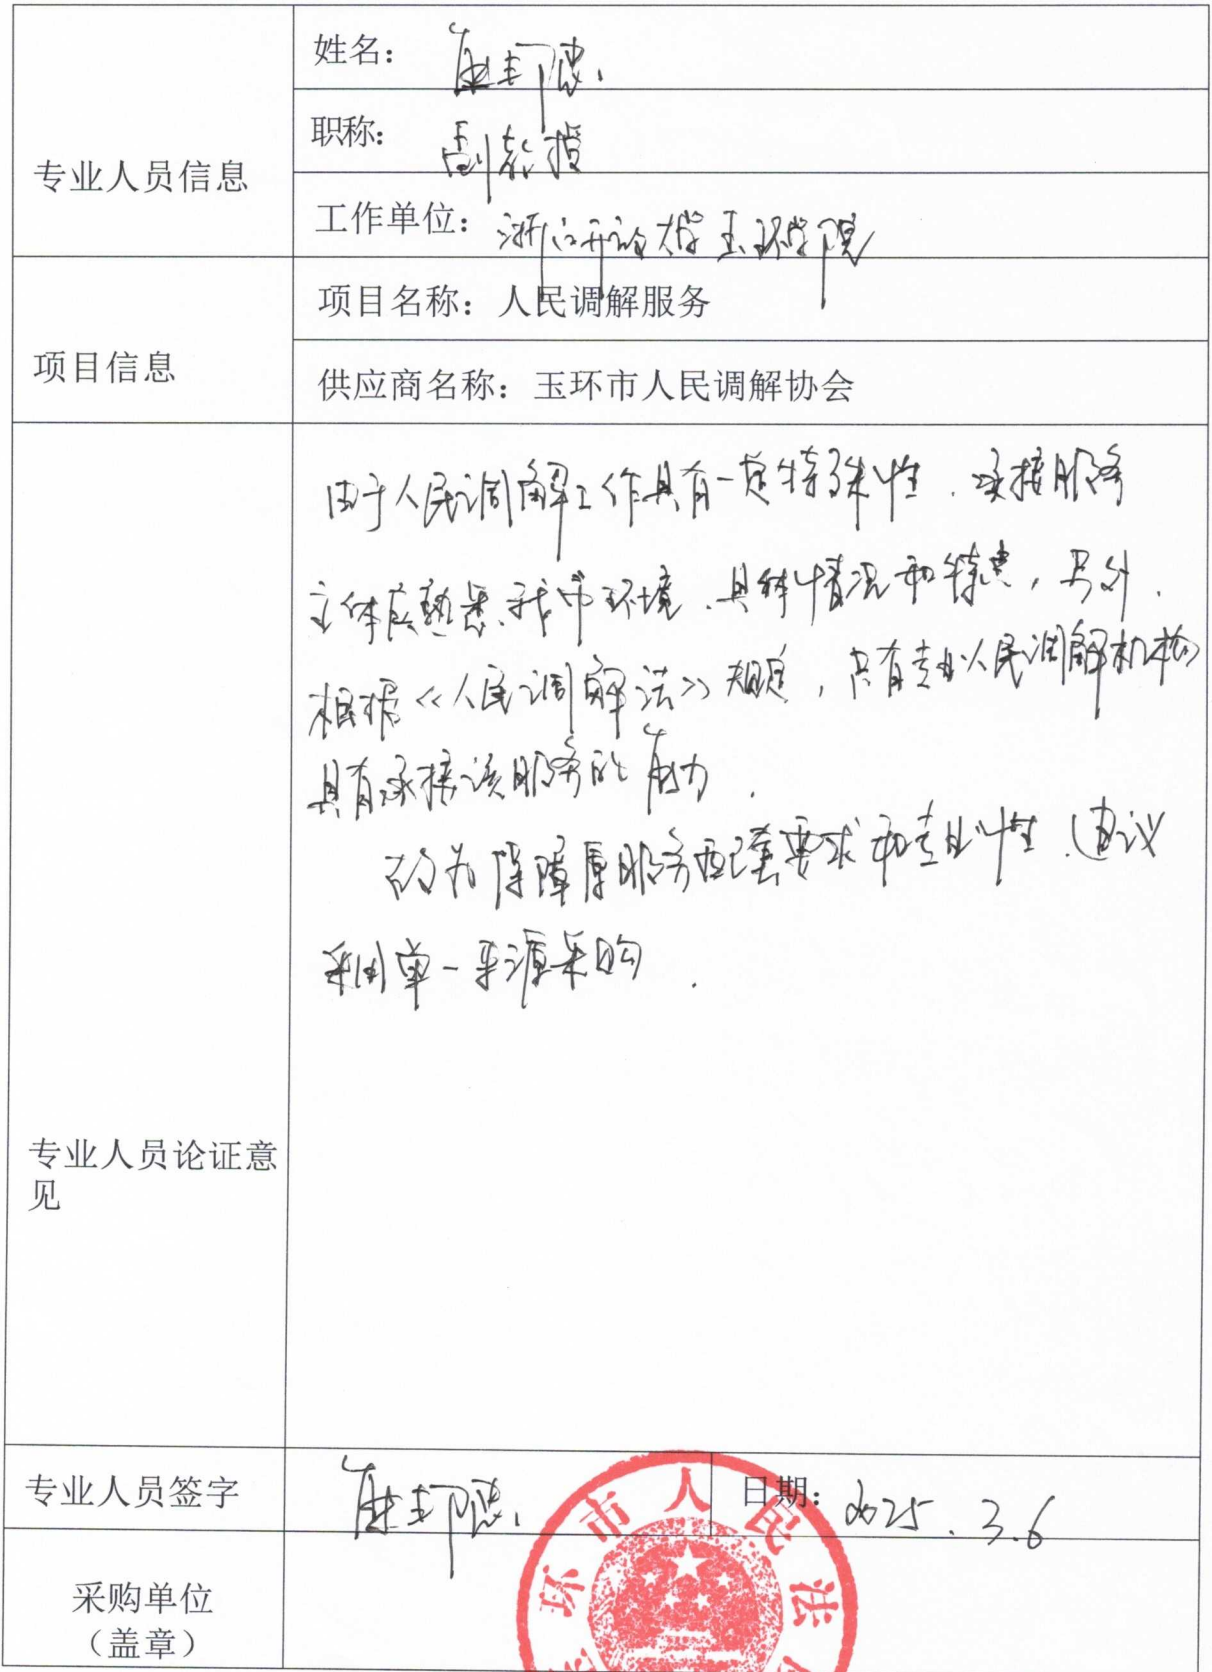 专业人员信息
姓名：
职称：副教授
工作单位：浙江开放大学玉环学院
项目信息
项目名称：人民调解服务
供应商名称：玉环市人民调解协会
专业人员论证意
见
由于人民调解工作具有一定特殊性，承接服务
主体应熟悉我市环境、具体情况和特点，另外，
根据《人民调解法》规定，只有专业人民调解机构
具有承接该服务的能力．
为保障服务配套要求和专业性，建议
采用单一来源采购．
专业人员签字
日期：2025.3.6
采购单位
（盖章）
环市人民法